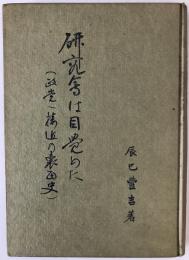 研究会は目覚めた
(政党へ接近の裏面史)
辰巳豊吉著